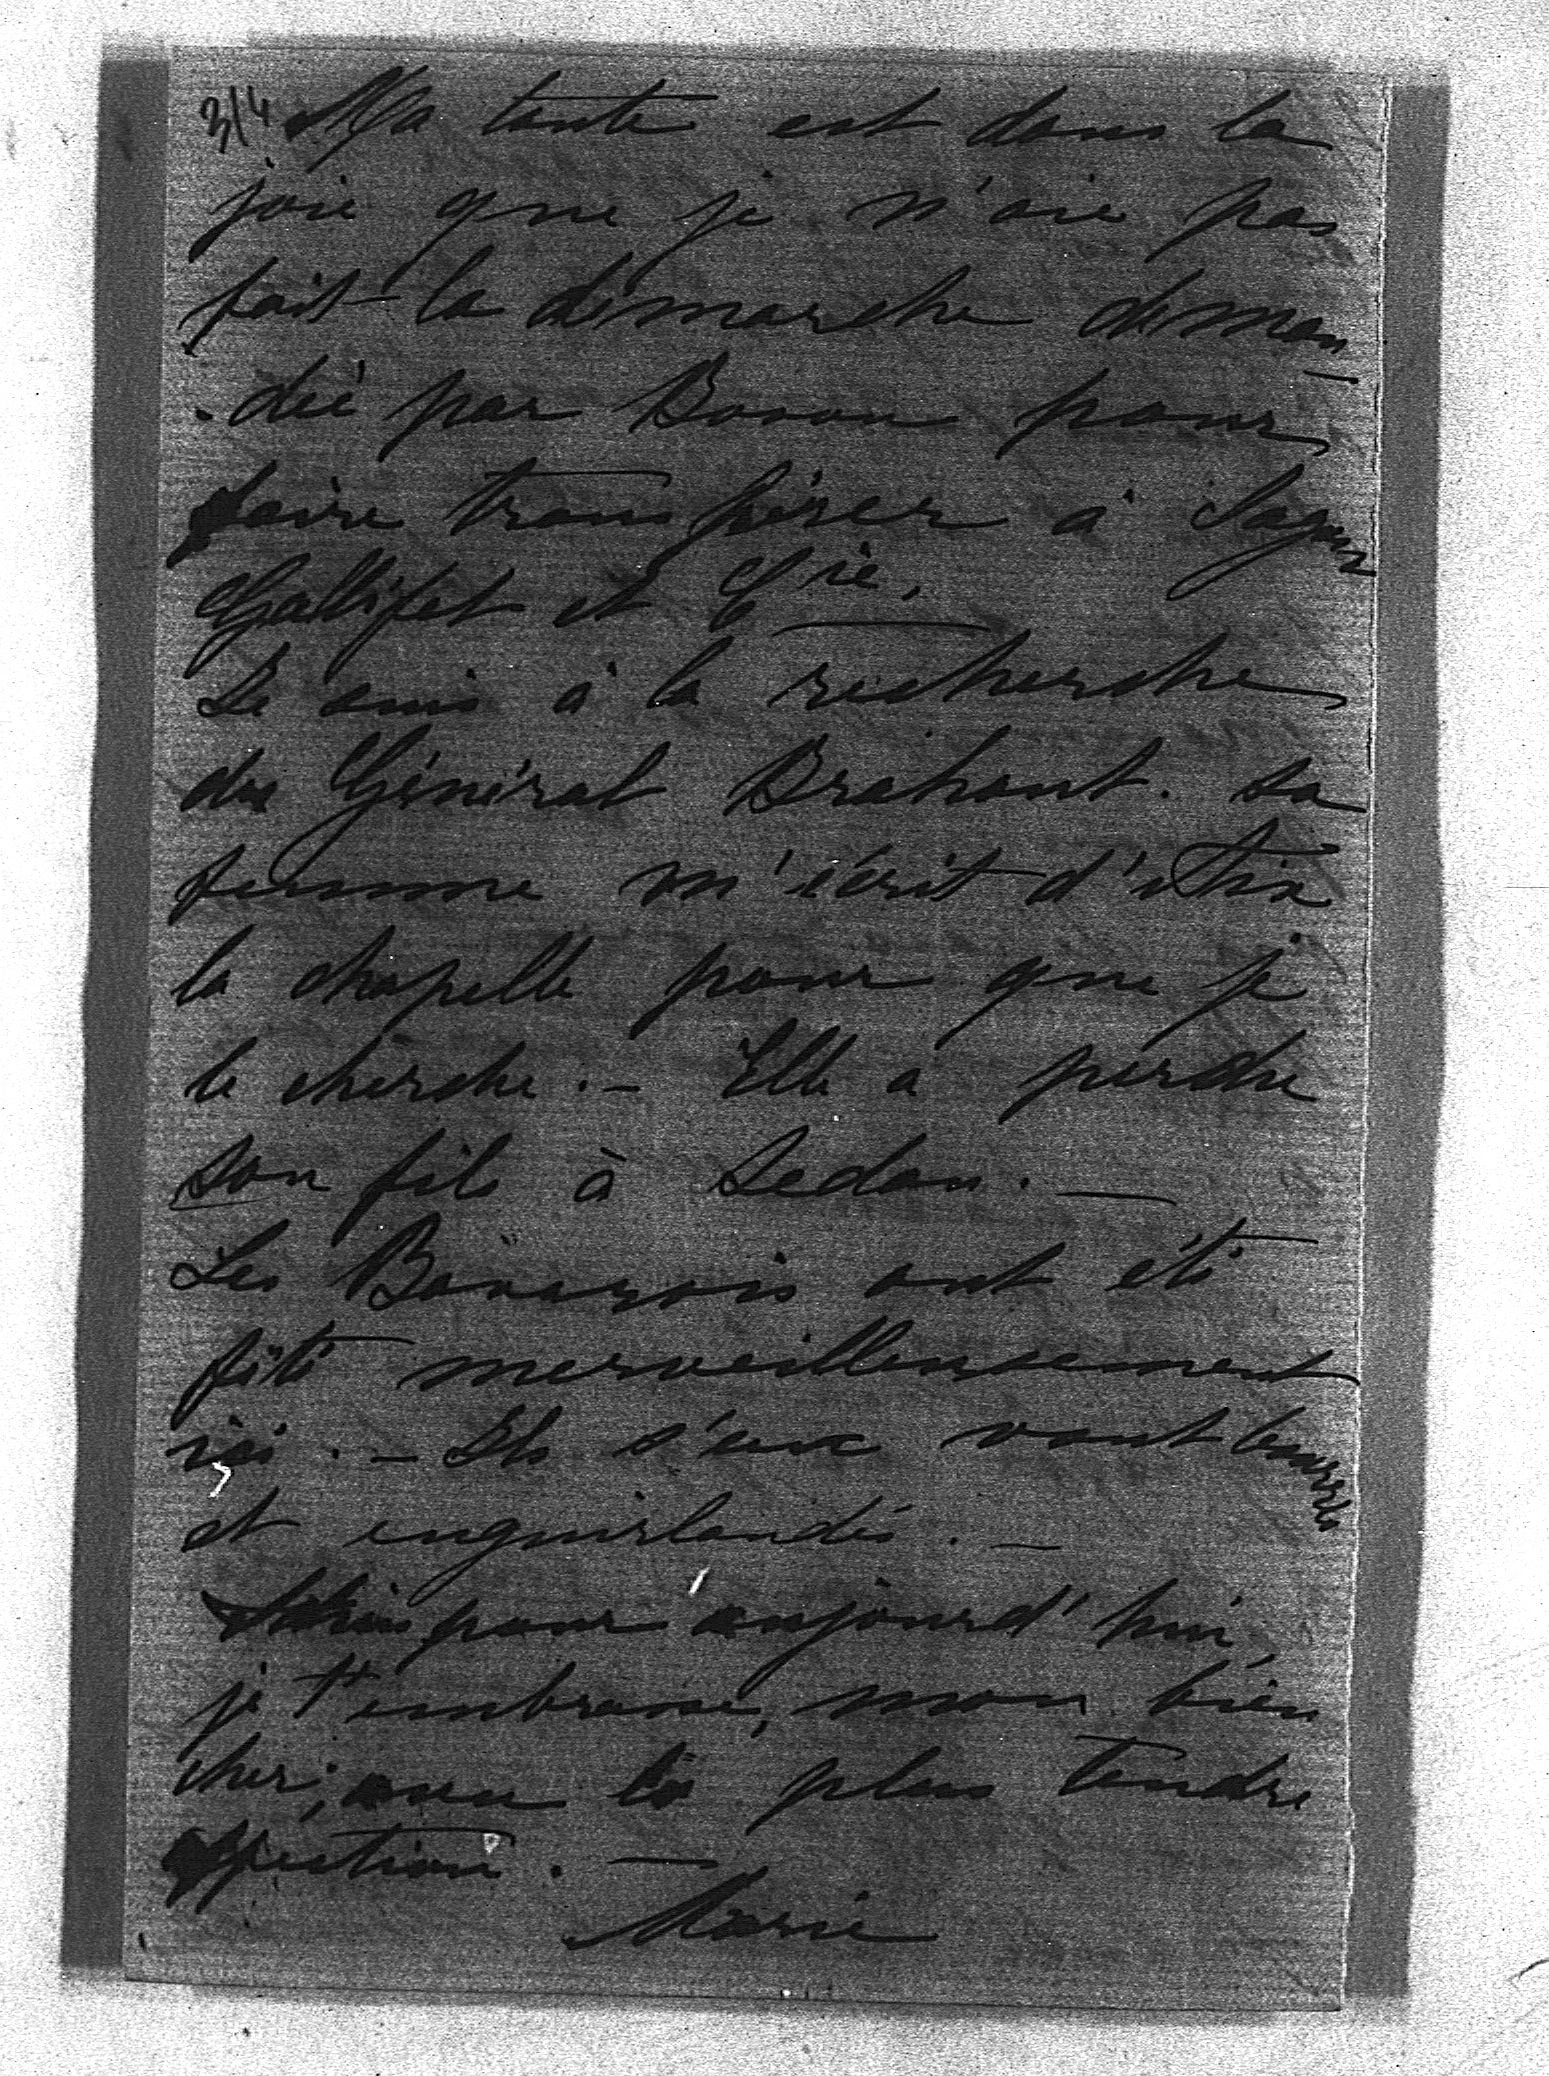 3/4 Ma tante est dans la
joie que je n'aie pas
fait la démarche deman
-dée par Boson pour
faire transpirer à Sagan
Gallifet et Cie. —
Je suis à la recherche
du Général Brahaut. Sa
femme m'écrit d'Aix
la chapelle pour que je
le cherche. — Elle a perdu
son fils à Sedan. —
Les Bavarois ont été
fêté merveilleusement
ici. — Ils s'en vont bourrés
et enguirlandés. —
pour aujourd'hui,
je t'embrasse, mon bien
cher, avec la plus tendre
affection. —
Marie